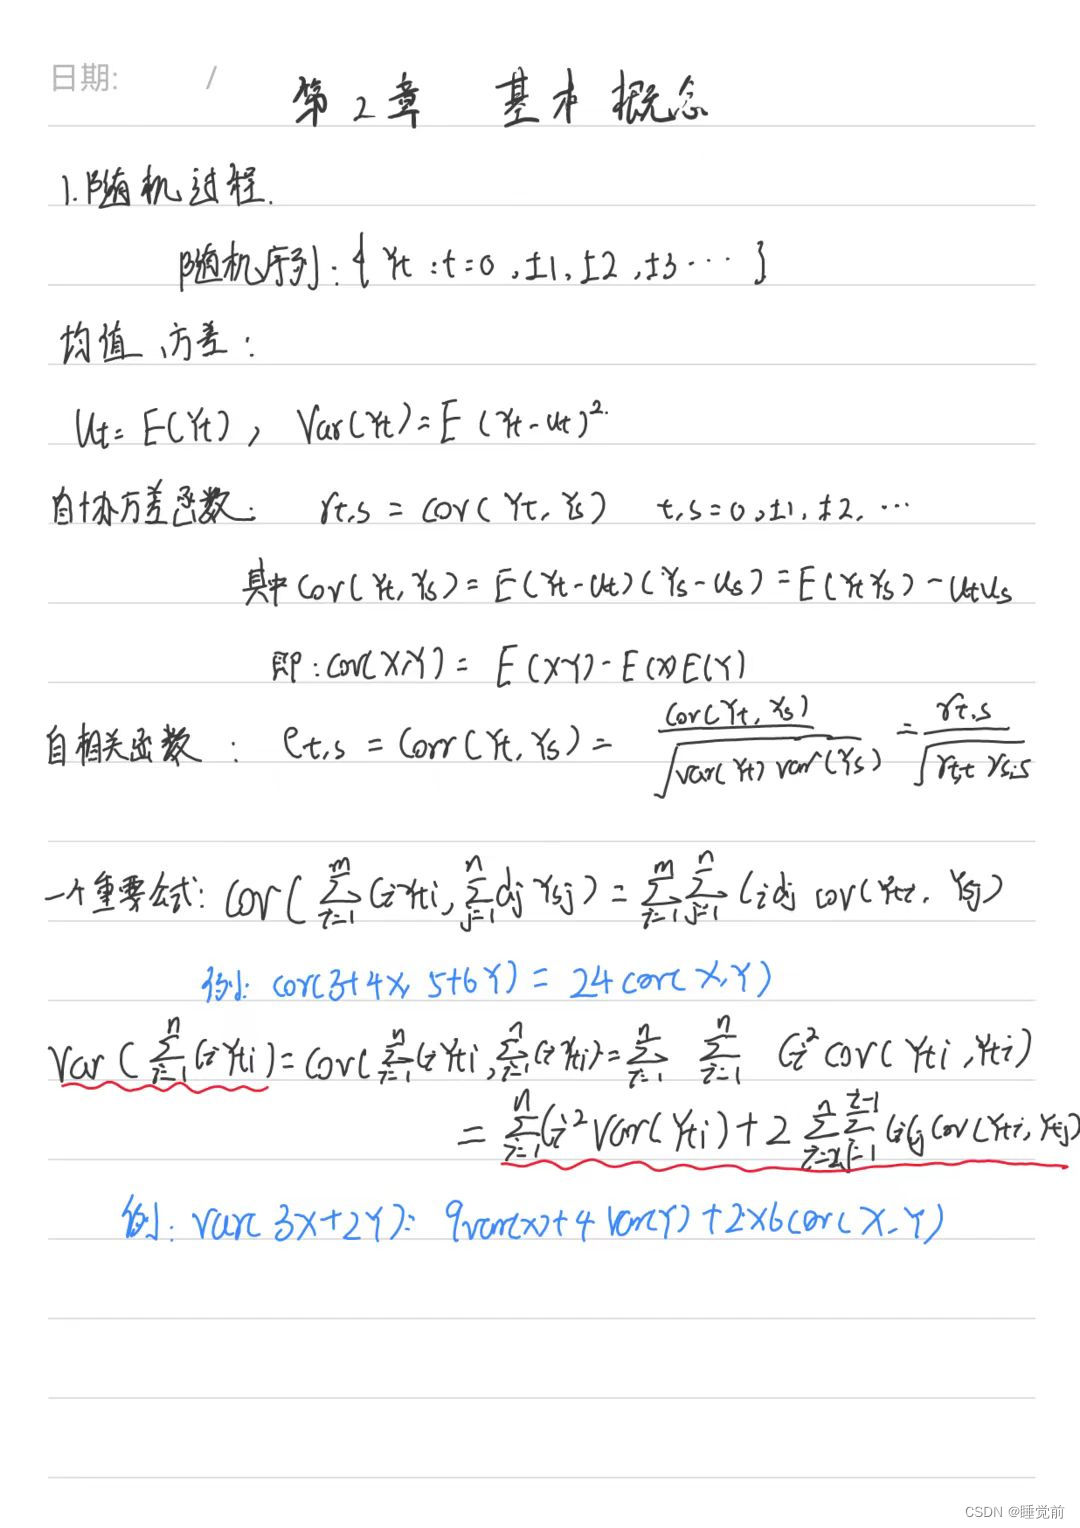 日期: /
第2章 基本概念
1.随机过程.
随机序列:{Yt:t=0,±1,±2,±3…}
均值、方差:
Ut=E(Yt), Var(Yt)=E(Yt-Ut)².
自协方差函数: γt,s = Cov(Yt,Ys) t,s=0,±1,±2,…
其中Cov(Yt,Ys)=E(Yt-Ut)(Ys-Us)=E(YtYs)-UtUs
即:Cov(X,Y)= E(XY)-E(X)E(Y)
自相关函数: ρt,s = Corr(Yt,Ys) = Cov(Yt,Ys)/√(Var(Yt)Var(Ys)) = γt,s/√(γt,t γs,s)
一个重要公式: Cov(∑_{i=1}^{m} CiYti, ∑_{j=1}^{n} djYsj) = ∑_{i=1}^{m} ∑_{j=1}^{n} Cidj Cov(Yti, Ysj)
例: Cov(3+4X, 5+6Y) = 24Cov(X,Y)
Var(∑_{i=1}^{n} CiYti) = Cov(∑_{i=1}^{n} CiYti, ∑_{i=1}^{n} CiYti) = ∑_{i=1}^{n} ∑_{i=1}^{n} Ci² Cov(Yti,Yti)
= ∑_{i=1}^{n} Ci² Var(Yti) + 2 ∑_{i=2}^{n} ∑_{j=1}^{i-1} CiCj Cov(Yti,Ytj)
例: Var(3X+2Y): 9Var(X)+4Var(Y)+2×6Cov(X,Y)
CSDN @睡觉前